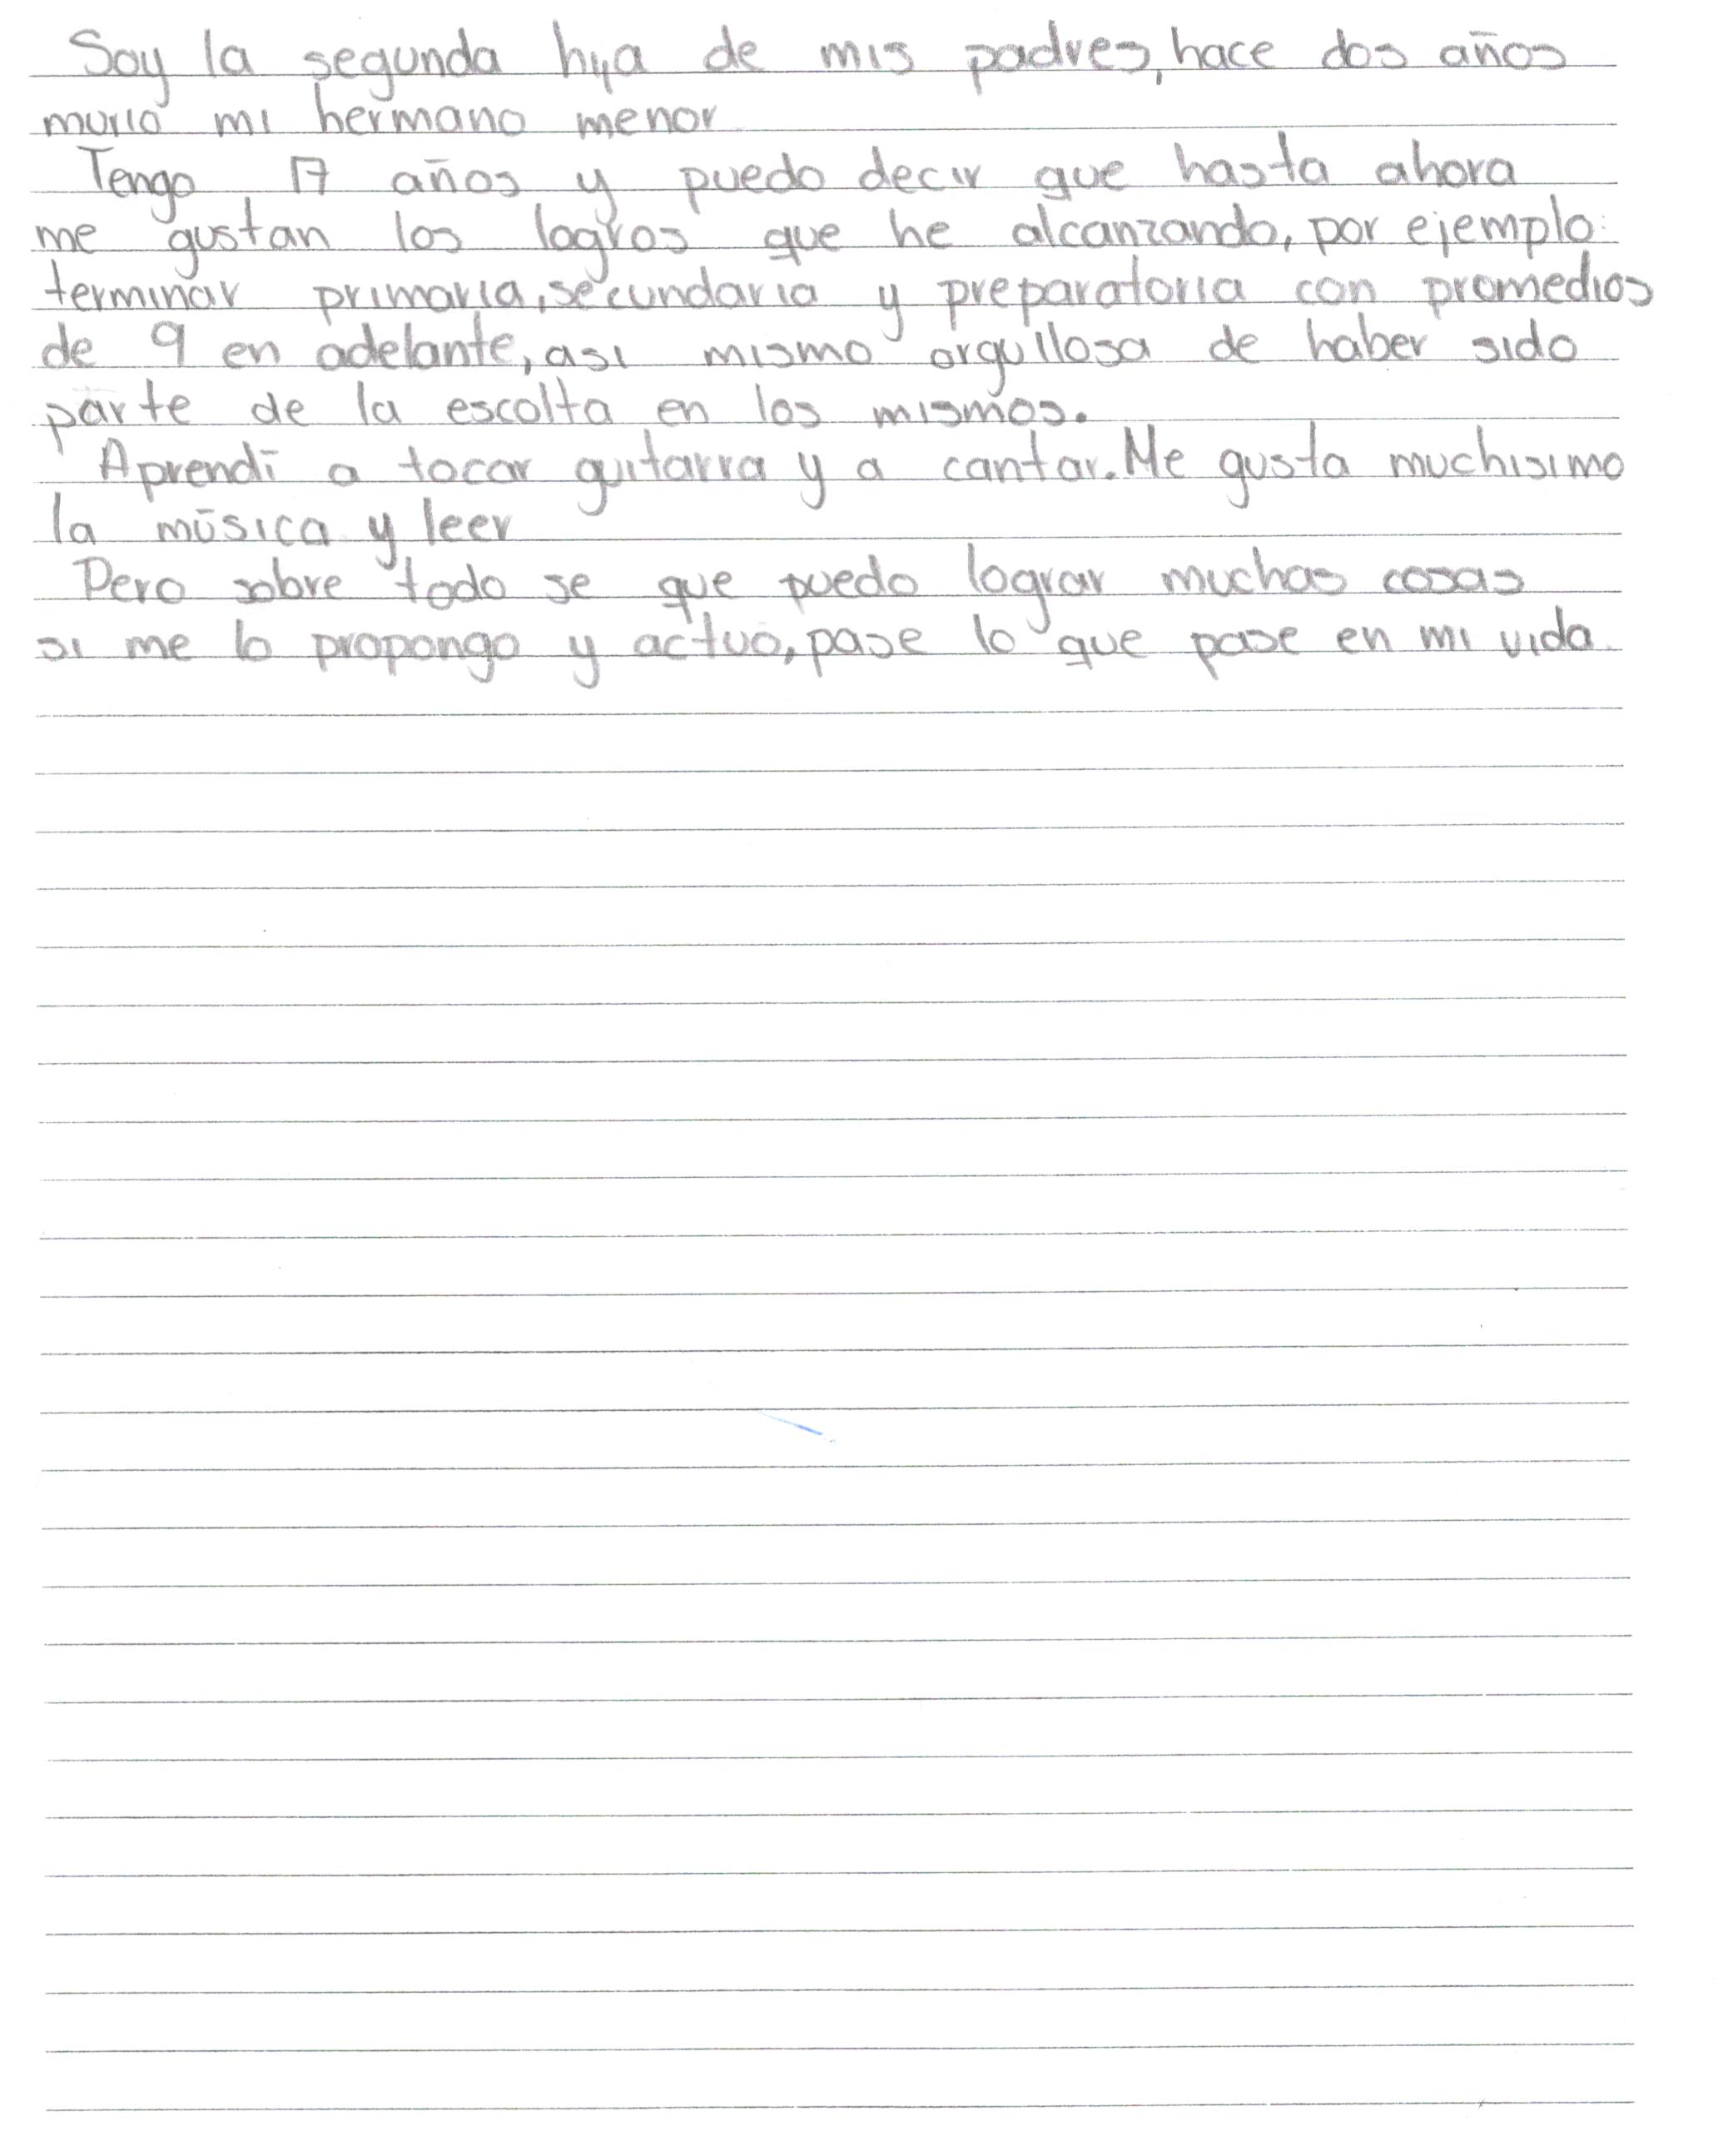 Soy la segunda hija de mis padres, hace dos años
murió mi hermano menor
Tengo 17 años y puedo decir que hasta ahora
me gustan los logros que he alcanzando, por ejemplo:
terminar primaria, secundaria y preparatoria con promedios
de 9 en adelante, asi mismo orgullosa de haber sido
parte de la escolta en los mismos.
Aprendí a tocar guitarra y a cantar. Me gusta muchisimo
la música y leer
Pero sobre todo se que puedo lograr muchas cosas
si me lo propongo y actuó, pase lo que pase en mi vida.